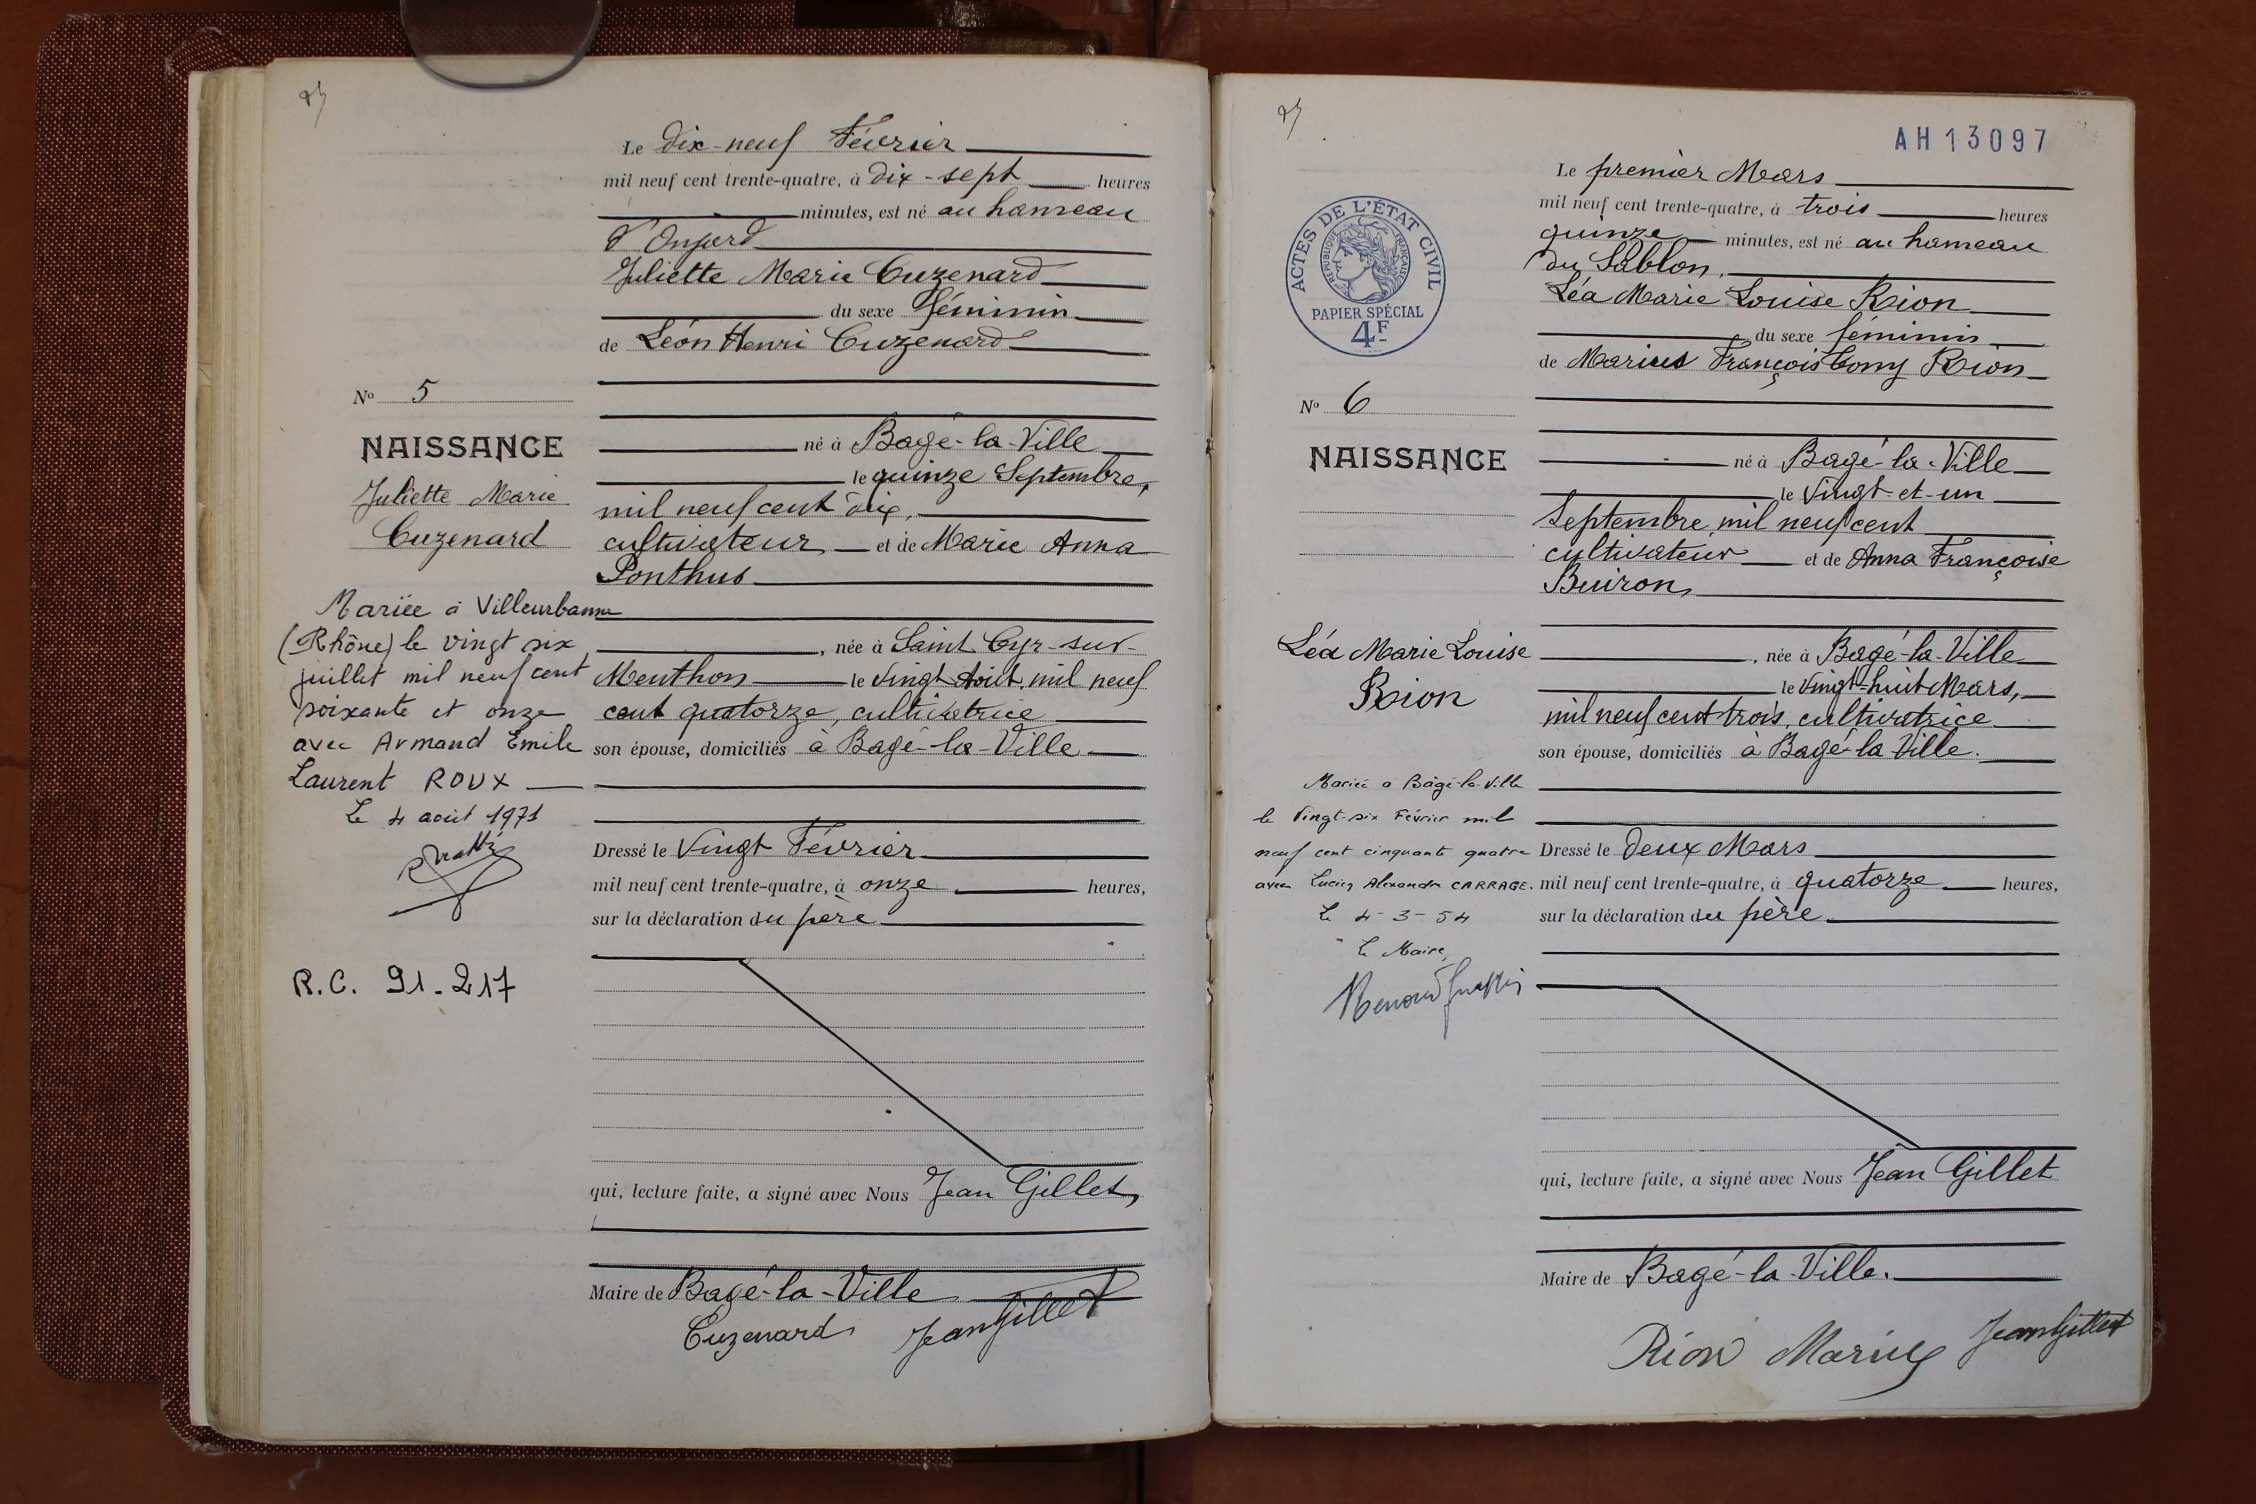 Le dix-neuf Février
mil neuf cent trente-quatre, à dix-sept heures
minutes, est né au hameau
d'Onjard
Juliette Marie Cuzenard
du sexe féminin
de Léon Henri Cuzenard
né à Bagé-la-Ville
le quinze Septembre,
mil neuf cent dix,
cultivateur et de Marie Anna
Ponthus
, née à Saint Cyr-sur-
Menthon le vingt Août, mil neuf
cent quatorze, cultivatrice
son épouse, domiciliés à Bagé-la-Ville
Dressé le Vingt Février
mil neuf cent trente-quatre, à onze heures,
sur la déclaration du père
qui, lecture faite, a signé avec Nous Jean Gillet,
Maire de Bagé-la-Ville
Cuzenard Jean Gillet
No 5
NAISSANCE
Juliette Marie
Cuzenard
Mariée à Villeurbanne
(Rhône) le vingt six
juillet mil neuf cent
soixante et onze
avec Armand Emile
Laurent ROUX
Le 4 août 1971
R.C. 91-217
AH13097
ACTES DE L'ÉTAT CIVIL
RÉPUBLIQUE FRANÇAISE
PAPIER SPÉCIAL
4F
Le premier Mars
mil neuf cent trente-quatre, à trois heures
quinze minutes, est né au hameau
du Sablon,
Léa Marie Louise Rion
du sexe féminin
de Marius François Tony Rion
né à Bagé-la-Ville
le Vingt-et-un
Septembre mil neuf cent
cultivateur et de Anna Françoise
Buiron,
, née à Bagé-la-Ville
le Vingt-huit Mars,
mil neuf cent trois, cultivatrice
son épouse, domiciliés à Bagé-la Ville.
Dressé le deux Mars
mil neuf cent trente-quatre, à quatorze heures,
sur la déclaration du père
qui, lecture faite, a signé avec Nous Jean Gillet
Maire de Bagé-la-Ville.
Rion Marius Jean Gillet
No 6
NAISSANCE
Léa Marie Louise
Rion
Mariée à Bâgé-la-Ville
le Vingt-six Février mil
neuf cent cinquante quatre
avec Lucien Alexandre CARRAGE.
Le 4-3-54
Le Maire,